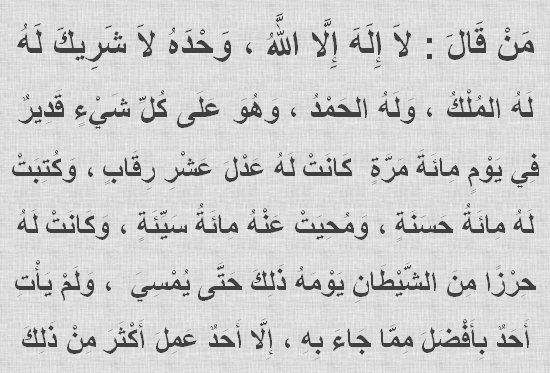 مَنْ قَالَ : لاَ إِلَهَ إِلَّا اللَّهُ ، وَحْدَهُ لاَ شَرِيكَ لَهُ
لَهُ المُلْكُ ، وَلَهُ الحَمْدُ ، وهُوَ عَلَى كُلّ شَيْءٍ قَدِيرٌ
فِي يَوْمٍ مِائَةَ مَرَّةٍ كَانتْ لَهُ عَدْلَ عَشْرِ رِقَابٍ ، وَكُتِبَتْ
لهُ مِائَةُ حَسَنةٍ ، وَمُحيَتْ عَنْهُ مِائَةُ سَيّئةٍ ، وَكَانتْ لَهُ
حِرْزًا مِنَ الشَّيْطَانِ يَوْمَهُ ذَلِكَ حَتَّى يُمْسِيَ ، وَلمْ يَأْتِ
أَحَدٌ بِأَفْضَلَ مِمَّا جَاءَ بِهِ ، إِلَّا أَحَدٌ عَمِلَ أَكْثَرَ مِنْ ذَلِكَ